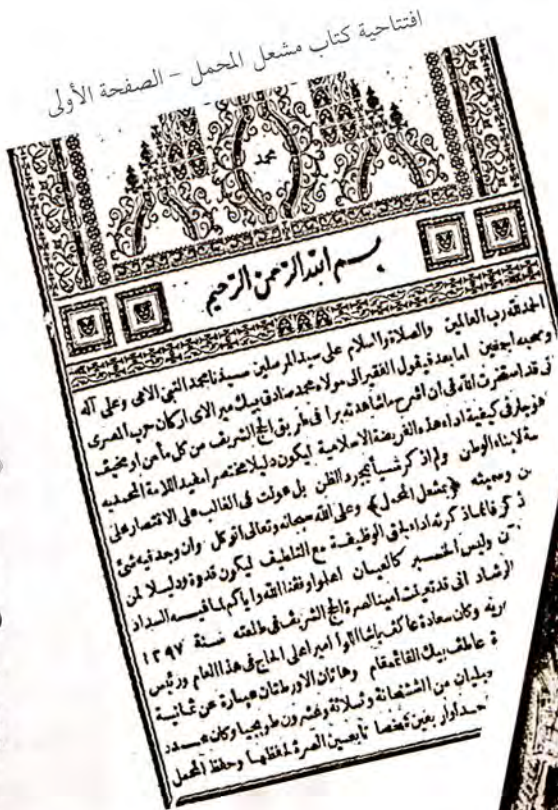 افتتاحية كتاب مشعل المحمل – الصفحة الأولى
محمد
بسم الله الرحمن الرحيم
الحمد لله رب العالمين والصلاة والسلام على سيد المرسلين سيدنا محمد النبي الامى وعلى آله
وصحبه اجمعين اما بعد فيقول الفقير الى مولاه محمد صادق بيك مير الاى اركان حرب المصرى
قد استخرت الله فى ان اشرح ما شاهدته برا فى طريق الحج الشريف من كل مأمن او مخيف
هو جار فى كيفية اداء هذه الفريضة الاسلامية ليكون دليلا مختصرا مفيد اللامة المحمديه
ـمة لابناء الوطن ولم اذكر شيأ بمجرد الظن بل عولت فى الغالب على الاقتصار على
ـن وسميته ﴿بمشعل المحمل﴾ وعلى الله سبحانه وتعالى اتوكل وان وجد فيه شئ
ذكر فانما ذكرته اداء لحق الوظيفة مع التلطيف ليكون قدوة ودليلا لمن
وليس الخبر كالعيان اعلموا وفقنا الله واياكم لما فيه السداد
الرشاد انى قد تعينت امينا لصرة الحج الشريف فى طلعته سنة ١٢٩٧
وكان سعادة عاكف باشا اللوا اميرا على الحاج فى هذا العام ورئيس
عاطف بيك القائمقام وهاتان الاورطتان عبارة عن ثمانية
من الششخانة وثلاثة وعشرون طوبجيا وكان
واربعين شخصا تابعين الصرة لحفظها وحفظ المحمل